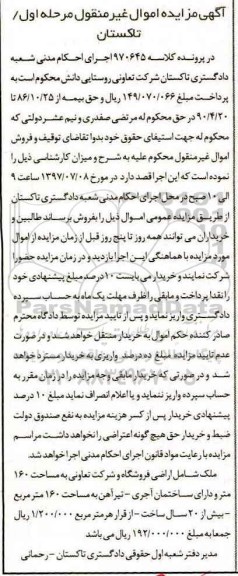 آگهی مزایده اموال غیر منقول مرحله اول/
تاکستان
در پرونده کلاسه ۹۷۰۶۴۵ اجرای احکام مدنی شعبه
دادگستری تاکستان شرکت تعاونی روستایی دانش محکوم است به
پرداخت مبلغ ۱۴۹/۰۷۰/۰۶۶ ریال و حق بیمه از ۸۶/۱۰/۲۵ تا
۹۰/۴/۲۰ در حق محکوم له مرتضی صفدری و نیم عشر دولتی که
محکوم له جهت استیفای حقوق خود بدوا تقاضای توقیف و فروش
اموال غیر منقول محکوم علیه به شرح و میزان کارشناسی ذیل را
نموده است که این اجرا قصد دارد در مورخ ۱۳۹۷/۰۷/۰۸ ساعت ۹
الی ۱۰ صبح در محل اجرای احکام مدنی شعبه دادگستری تاکستان
از طریق مزایده عمومی اموال ذیل را بفروش برساند طالبین و
خریداران می توانند همه روز تا پنج روز قبل از زمان مزایده از اموال
مورد مزایده با هماهنگی این اجرا بازدید و در زمان مزایده حضورا
شرکت نمایند و خریدار می بایست ۱۰ درصد مبلغ پیشنهادی خود
را نقدا پرداخت و مابقی را ظرف مهلت یک ماه به حساب سپرده
دادگستری واریز نماید و پس از تایید مزایده توسط دادگاه محترم
صادر کننده حکم اموال به خریدار منتقل خواهد شد و در صورت
عدم تایید مزایده مبلغ ده درصد واریزی به خریدار مسترد خواهد
شد و در صورتی که خریدار مابقی وجه مزایده را در زمان مقرر به
حساب سپرده واریز ننماید و یا اعلام انصراف نماید مبلغ ۱۰ درصد
پیشنهادی خریدار پس از کسر هزینه مزایده به نفع صندوق دولت
ضبط و خریدار حق هیچ گونه اعتراضی را نخواهد داشت مراسم
مزایده با رعایت مواد قانون اجرای احکام مدنی اجرا خواهد شد.
ملک شامل اراضی فروشگاه و شرکت تعاونی به مساحت ۱۶۰
متر و دارای ساختمان آجری - تیرآهن به مساحت ۱۶۰ متر مربع
- بیش از ۲۰ سال ساخت - از قرار هر متر مربع ۱/۲۰۰/۰۰۰ ریال
جمعا به مبلغ ۱۹۲/۰۰۰/۰۰۰ ریال می باشد
مدیر دفتر شعبه اول حقوقی دادگستری تاکستان - رحمانی